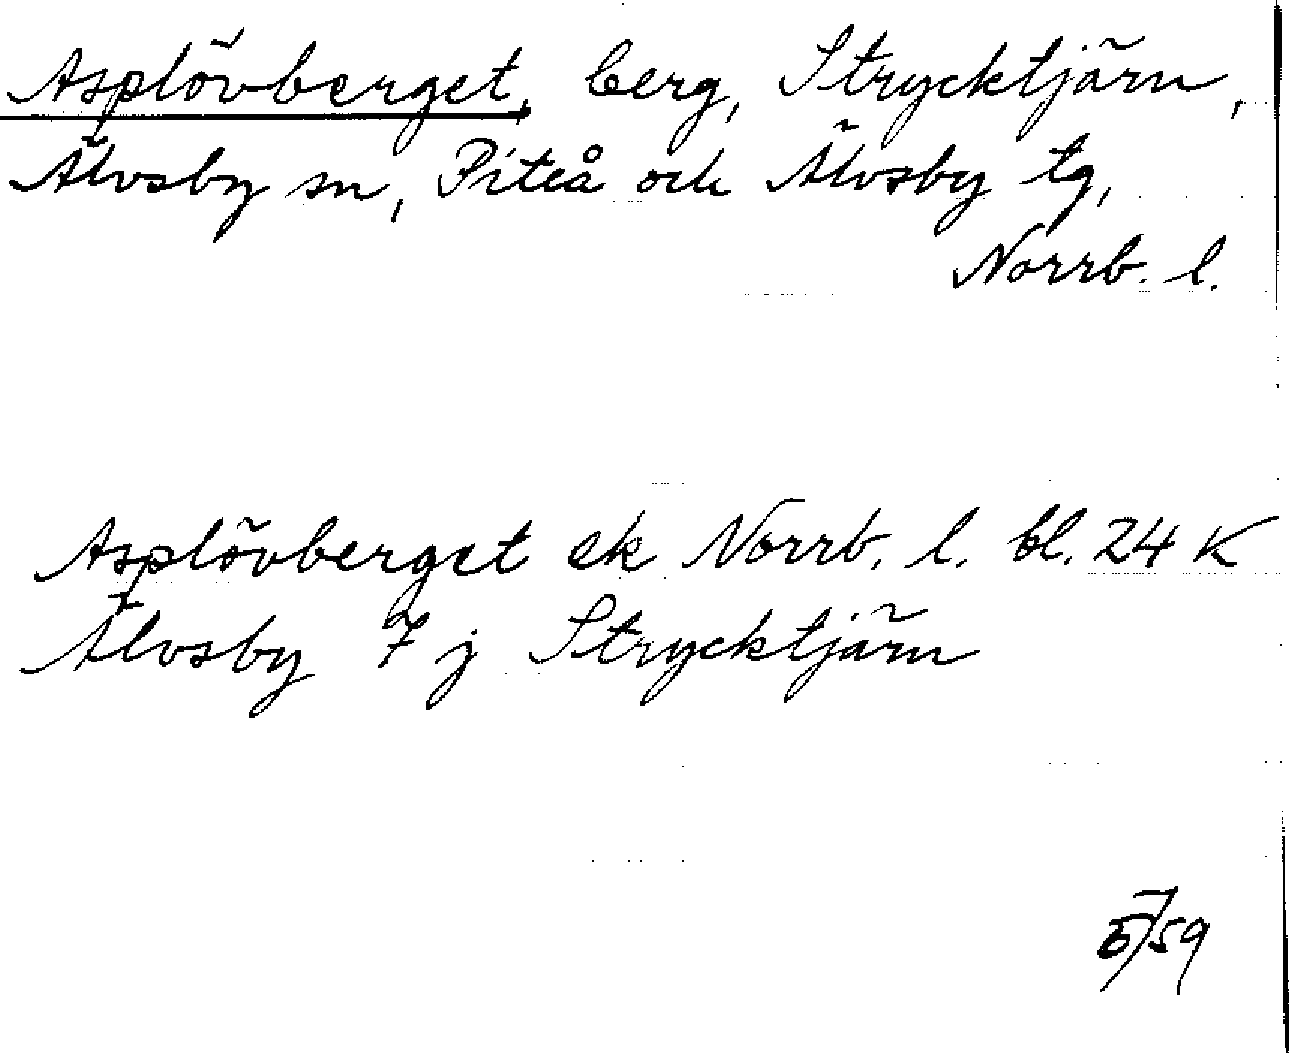 Asplövberget, berg, Strycktjärn,
Älvsby sn, Piteå och Älvsby tg,
Norrb. l.
Asplövberget ek Norrb. l. bl. 24 K
Älvsby 7 j Strycktjärn